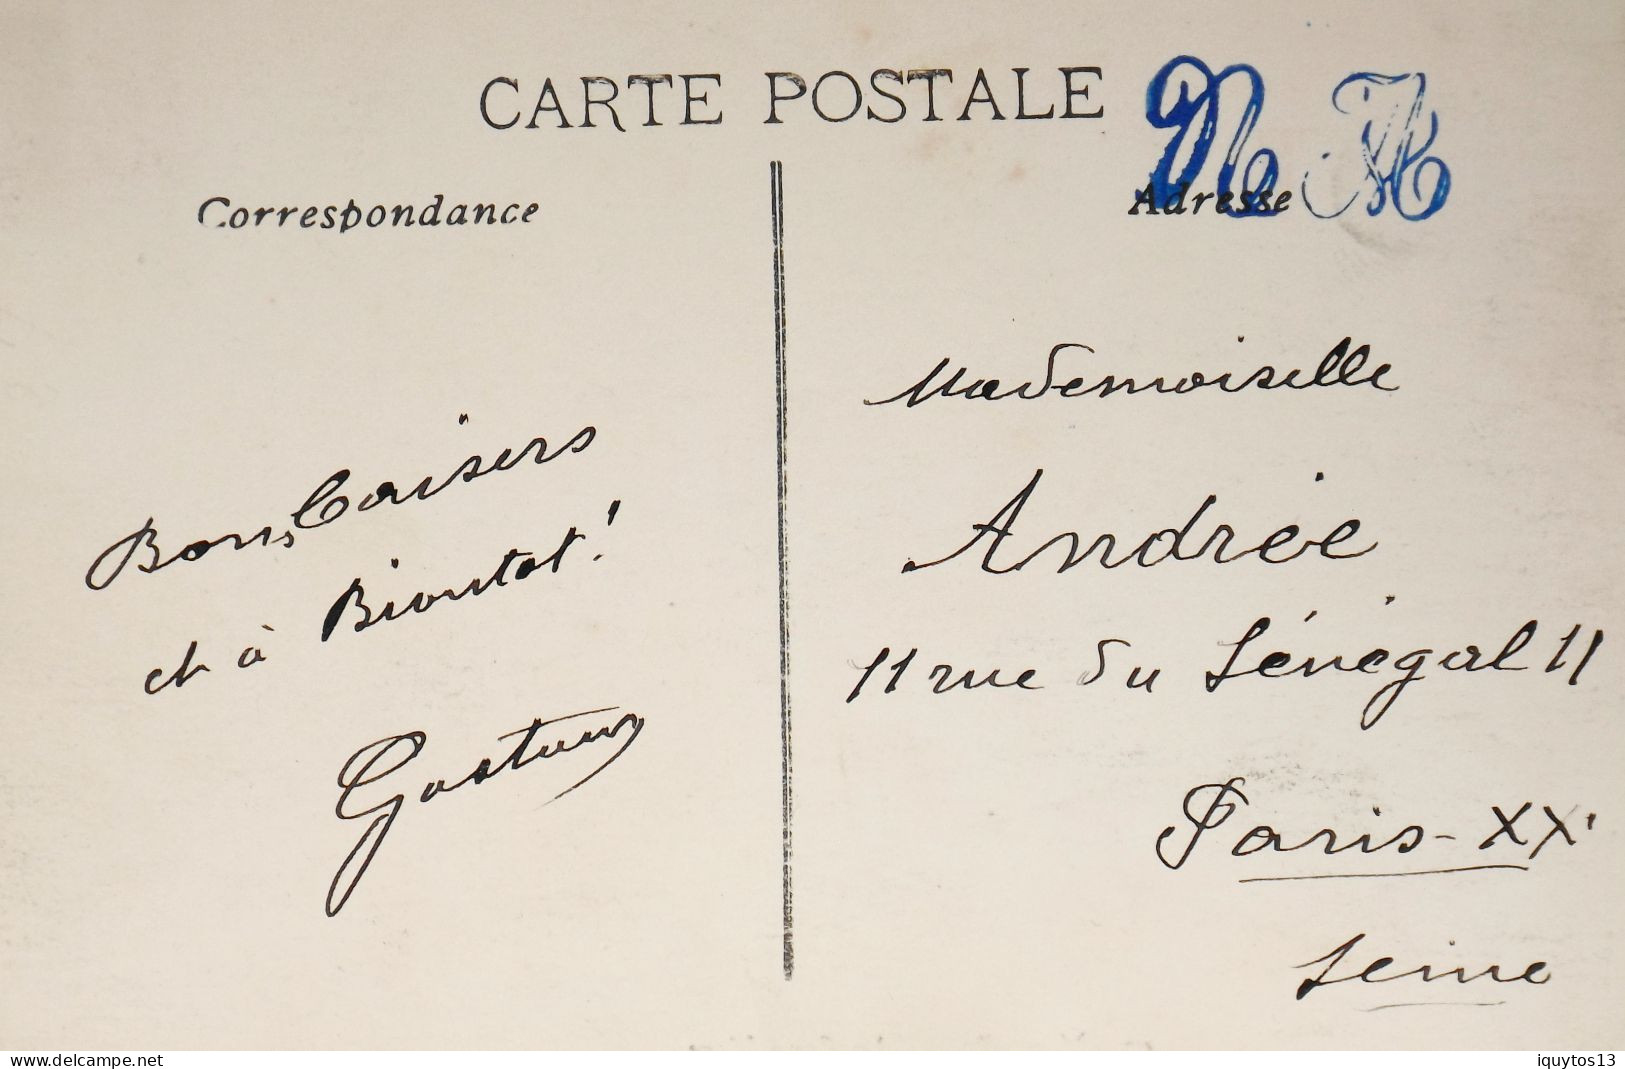 CARTE POSTALE
Correspondance
Bons baisers
et à Bientot !
Adresse
Mademoiselle
Andrée
11 rue du Sénégal 11
Paris - XXe
Seine
www.delcampe.net
iquytos13